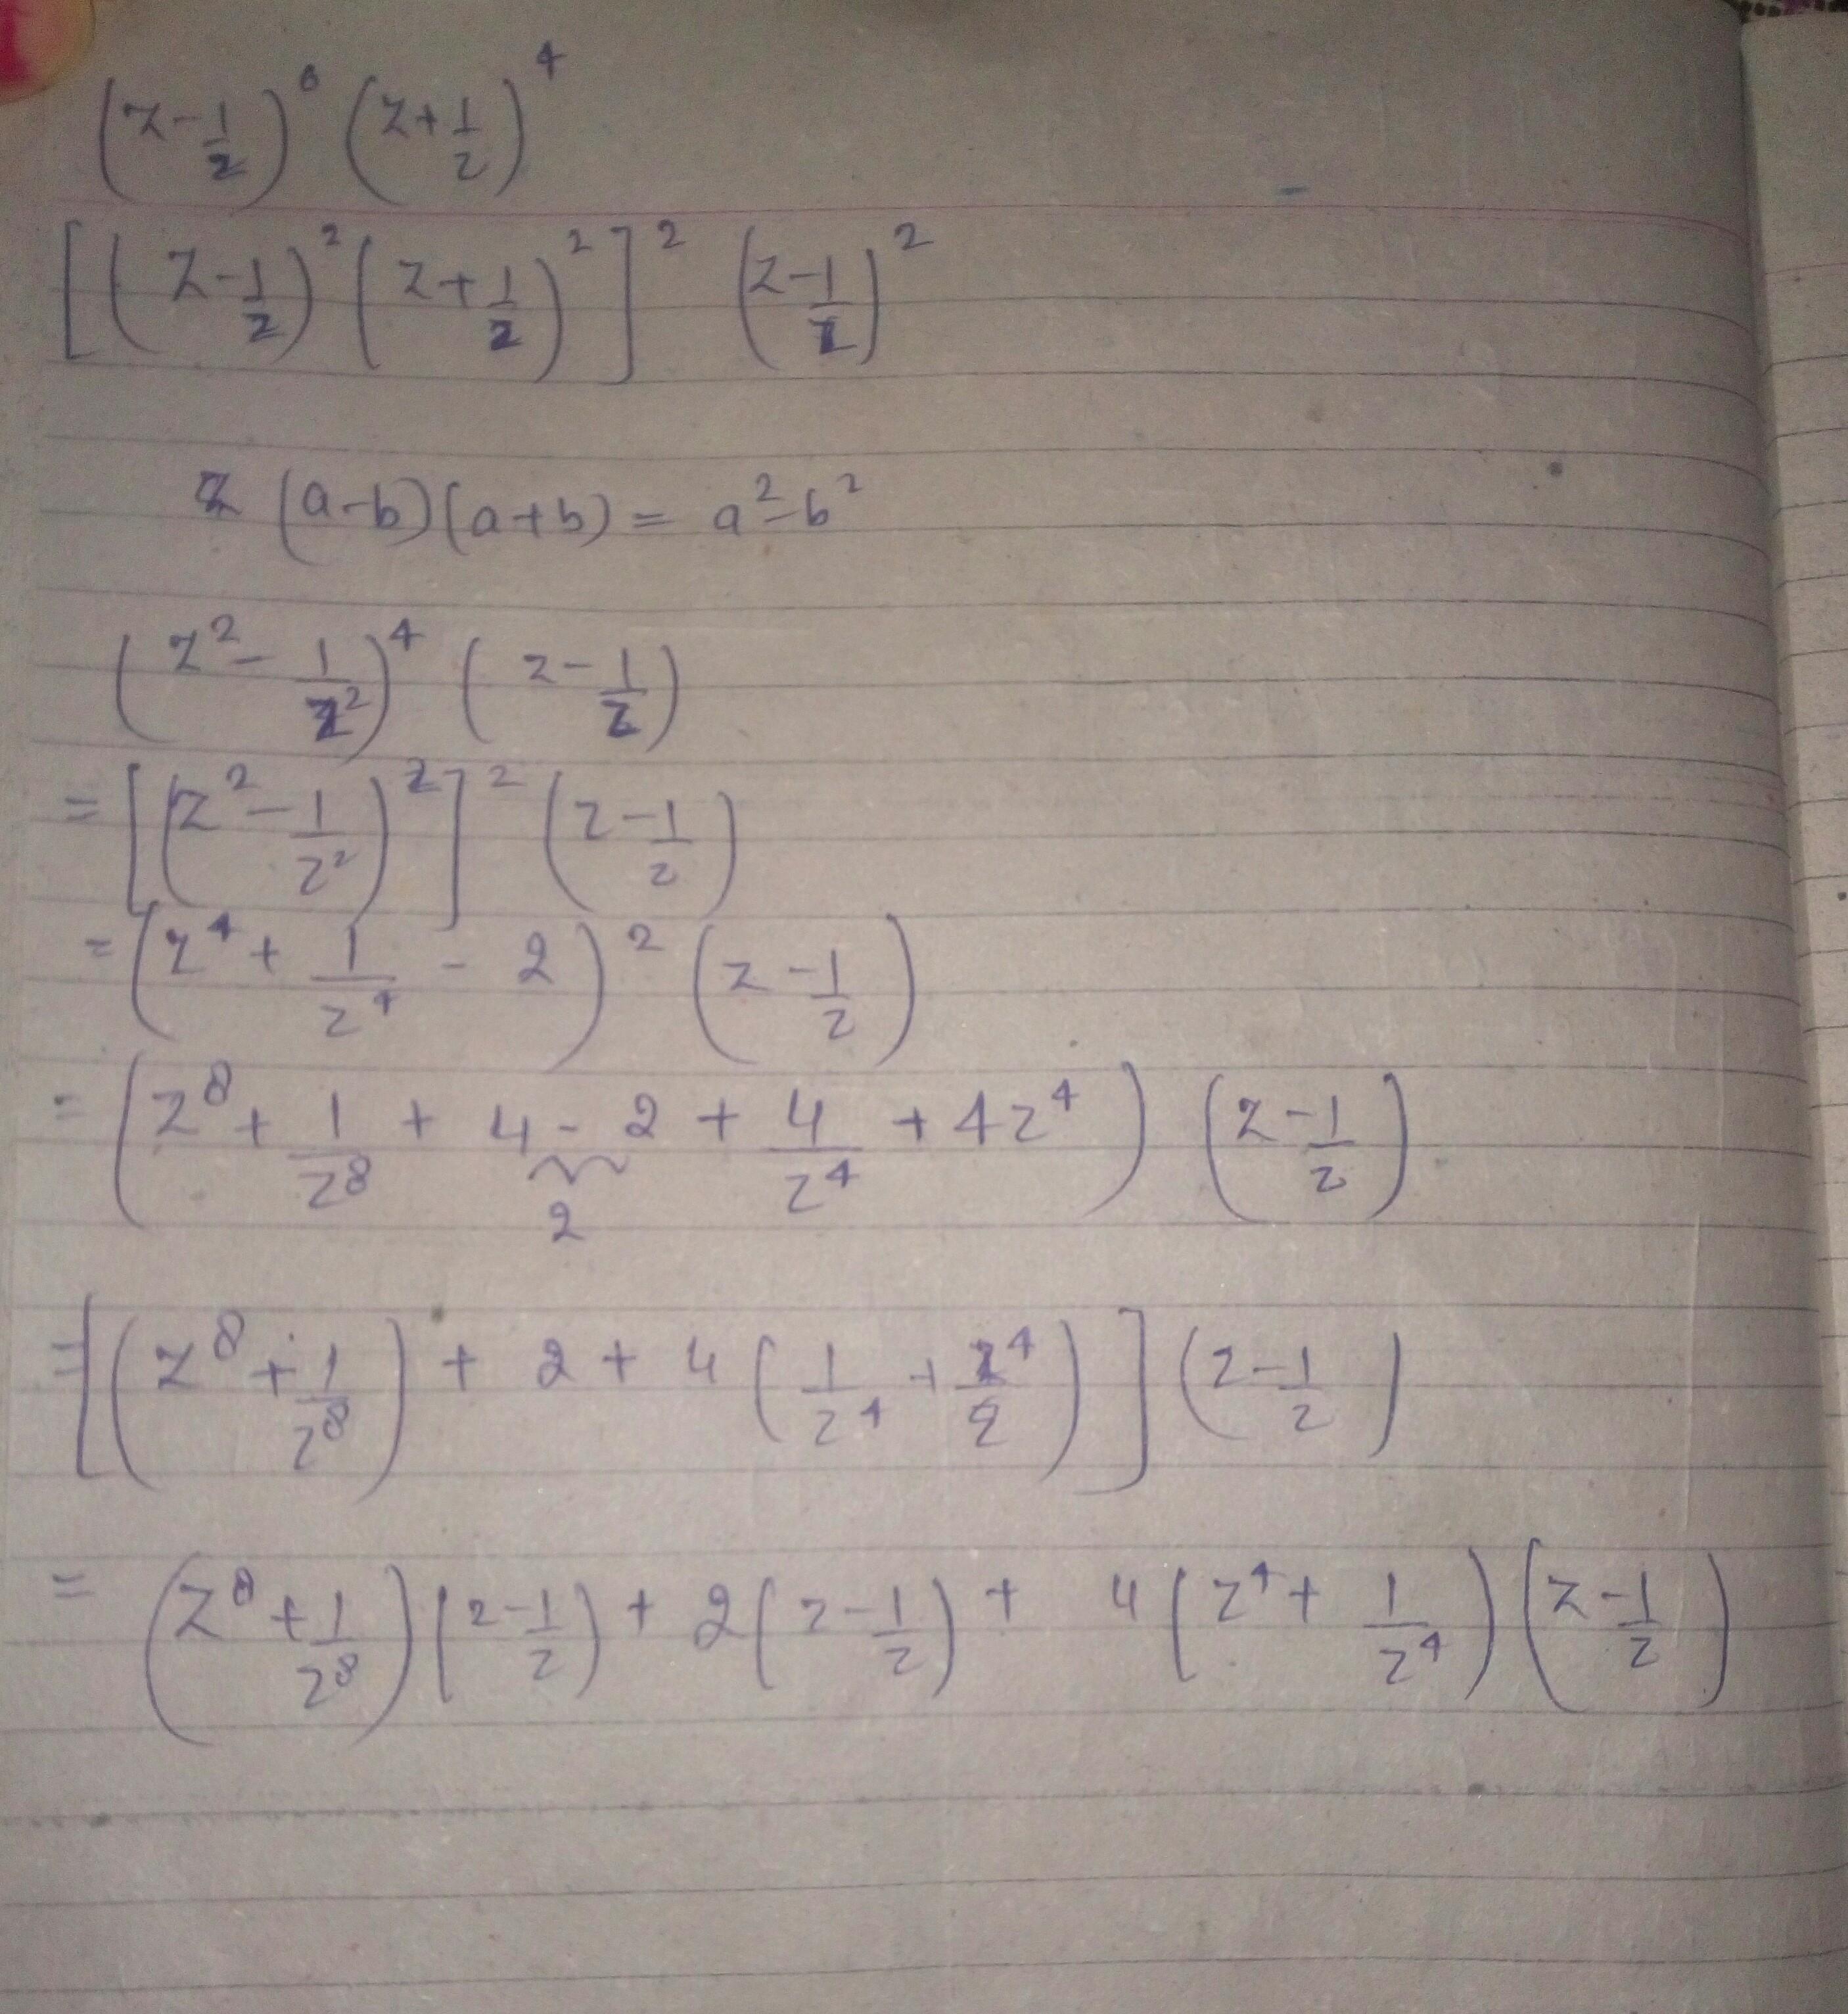 (z - 1/z)^6 (z + 1/z)^4
[(z - 1/z)^2 (z + 1/z)^2]^2 (z - 1/z)^2
(a-b)(a+b) = a^2 - b^2
(z^2 - 1/z^2)^4 (z - 1/z)
= [(z^2 - 1/z^2)^2]^2 (z - 1/z)
= (z^4 + 1/z^4 - 2)^2 (z - 1/z)
= (z^8 + 1/z^8 + 4 - 2 + 4/z^4 + 4z^4) (z - 1/z)
2
= [(z^8 + 1/z^8) + 2 + 4 (1/z^4 + z^4)] (z - 1/z)
= (z^8 + 1/z^8)(z - 1/z) + 2(z - 1/z) + 4(z^4 + 1/z^4)(z - 1/z)